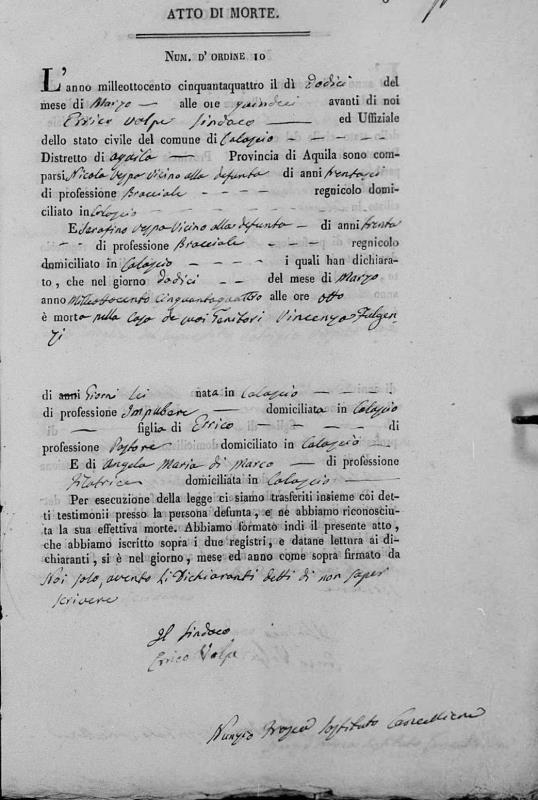 ATTO DI MORTE.
NUM. D' ORDINE 10
L'anno milleottocento cinquantaquattro il dì Dodici del
mese di Marzo — alle ore quindici avanti di noi
Errico Volpe Sindaco — ed Uffiziale
dello stato civile del comune di Calascio - - - -
Distretto di Aquila — Provincia di Aquila sono com-
parsi Nicola Vespa Vicino alla defunta di anni trentasei
di professione Bracciale - - - - regnicolo domi-
ciliato in Calascio - - - - - - - -
E Serafino Vespa Vicino alla defunta — di anni trenta
- - di professione Bracciale - - - regnicolo
domiciliato in Calascio - - - - i quali han dichiara-
to, che nel giorno dodici - - del mese di Marzo
anno Milleottocento Cinquantaquattro alle ore otto
è morta nella Casa de suoi Genitori Vincenza Fulgen-
zi
di anni Giorni sei nata in Calascio - - - -
di professione Impubere — domiciliata in Calascio
— figlia di Errico - - - - - di
professione Pastore domiciliato in Calascio —
E di Angela Maria di Marco — di professione
Filatrice domiciliata in Calascio —
Per esecuzione della legge ci siamo trasferiti insieme coi det-
ti testimonii presso la persona defunta, e ne abbiamo riconosciu-
ta la sua effettiva morte. Abbiamo formato indi il presente atto,
che abbiamo iscritto sopra i due registri, e datane lettura ai di-
chiaranti, si è nel giorno, mese ed anno come sopra firmato da
Noi solo, avendo li Dichiaranti detti di non saper
scrivere
Il Sindaco
Errico Volpe
Nunzio Sostituto Cancelliere